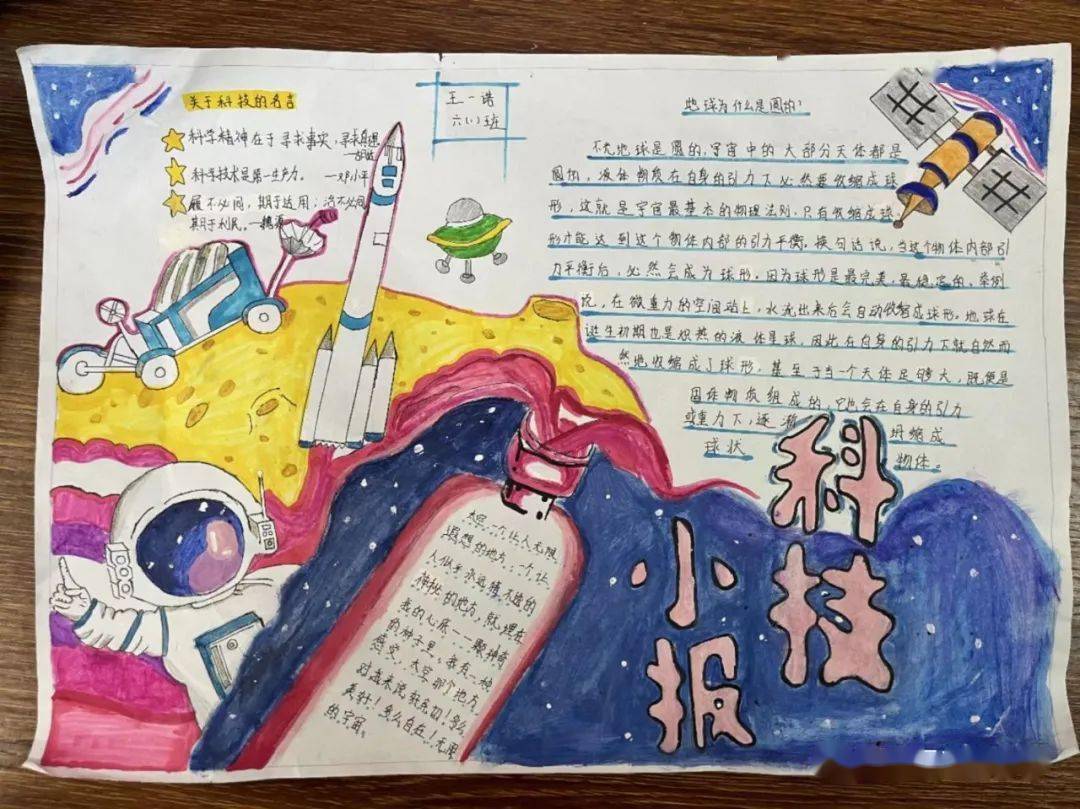 关于科技的名言
科学精神在于寻求事实，寻求真理
—胡适
科学技术是第一生产力。 —邓小平
履不必同，期于适用；治不必同，
期于利民。—魏源
王一诺
六(1)班
地球为什么是圆的？
不光地球是圆的，宇宙中的大部分天体都是
圆的，液体物质在自身的引力下必然要收缩成球
形，这就是宇宙最基本的物理法则，只有收缩成球
形才能达到这个物体内部的引力平衡。换句话说，当这个物体内部引
力平衡后，必然会成为球形。因为球形是最完美、最稳定的。举例
说，在微重力的空间站上，水流出来后会自动收缩成球形。地球在
诞生初期也是炽热的液体星球，因此在自身的引力下就自然而
然地收缩成了球形，甚至于当一个天体足够大，既便是
固体物质组成的，它也会在自身的引力
或重力下，逐渐 坍缩成
球状 物体。
太空，一个让人无限
遐想的地方，一个让
人似乎永远猜不透的
神秘的地方，就埋在
我的心底——一颗神奇
的种子里。我有一种
感觉，太空那个地方
对我来说很亲切！多么
美好！多么自在！无限
的宇宙。
科技
小报